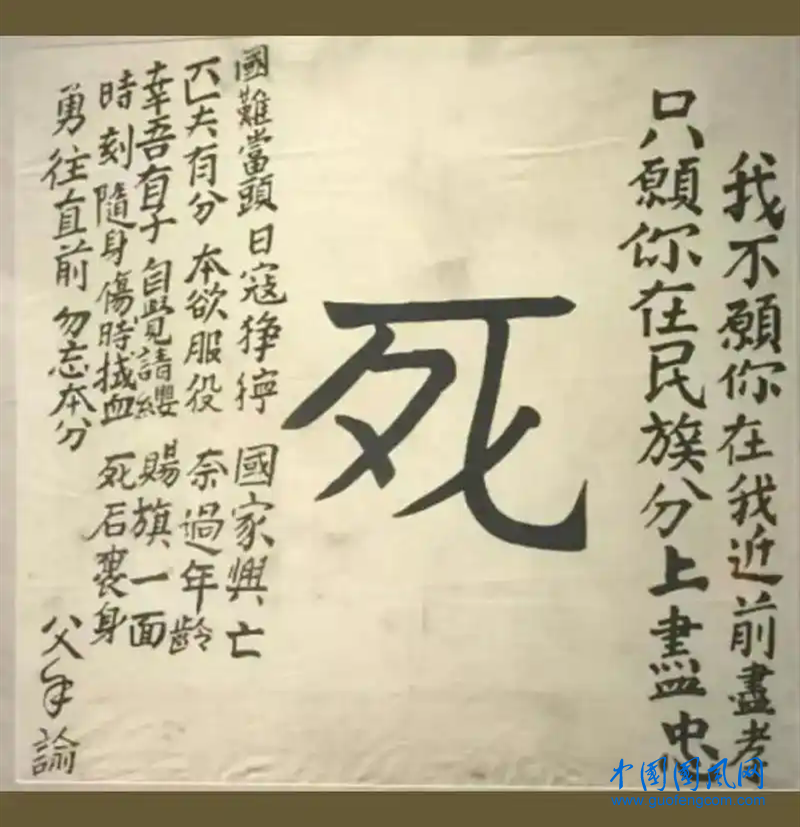 我不願你在我近前盡孝
只願你在民族分上盡忠
死
國難當頭 日寇猙獰 國家興亡
匹夫有分 本欲服役 奈過年齡
幸吾有子 自覺請纓 賜旗一面
時刻隨身 傷時拭血 死后裹身
勇往直前 勿忘本分
父手諭
中国国风网